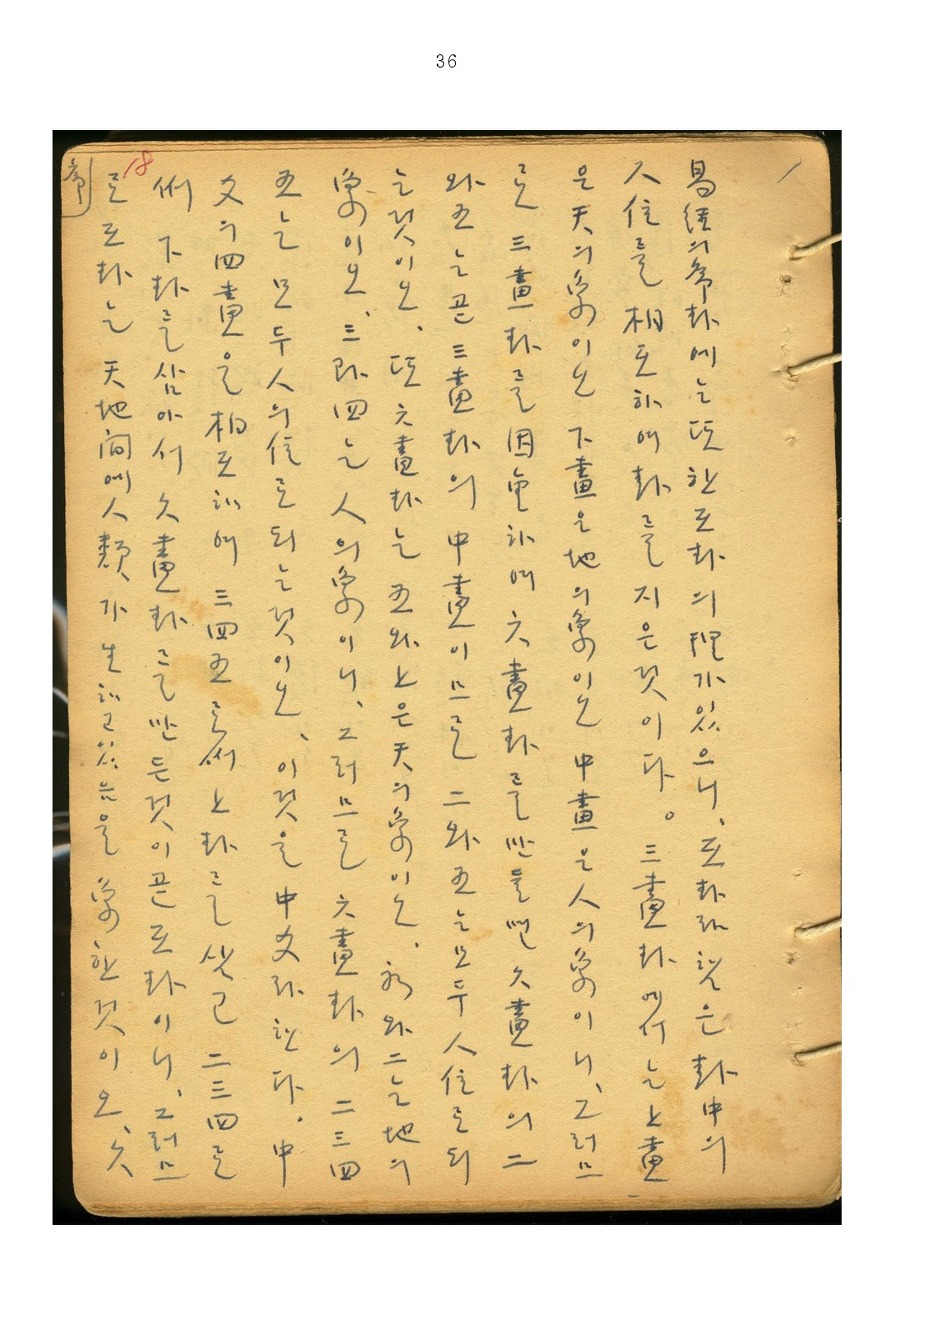 36
易經의 卦에는 또한 互卦의 理가 있으니, 互卦라 함은 卦中의
人位를 相互하여 卦를 지은 것이다。 三畫卦에서는 上畫
은 天의 象이오 下畫은 地의 象이오 中畫은 人의 象이니, 그러므
로 三畫卦를 因重하여 六畫卦를 만들면 六畫卦의 二
와 五는 곧 三畫卦의 中畫이므로 二와 五는 모두 人位로 되
는 것이오, 또 六畫卦는 五와 上은 天의 象이오, 初와 二는 地의
象이오, 三과 四는 人의 象이니, 그러므로 六畫卦의 二三四
五는 모두 人의 位로 되는 것이오, 이것을 中爻라 한다. 中
爻의 四畫을 相互하여 三四五로써 上卦를 삼고 二三四로
써 下卦를 삼아서 六畫卦를 만든 것이 곧 互卦이니, 그러므
로 互卦는 天地間에 人類가 生하고 있음을 象한 것이오, 六
18